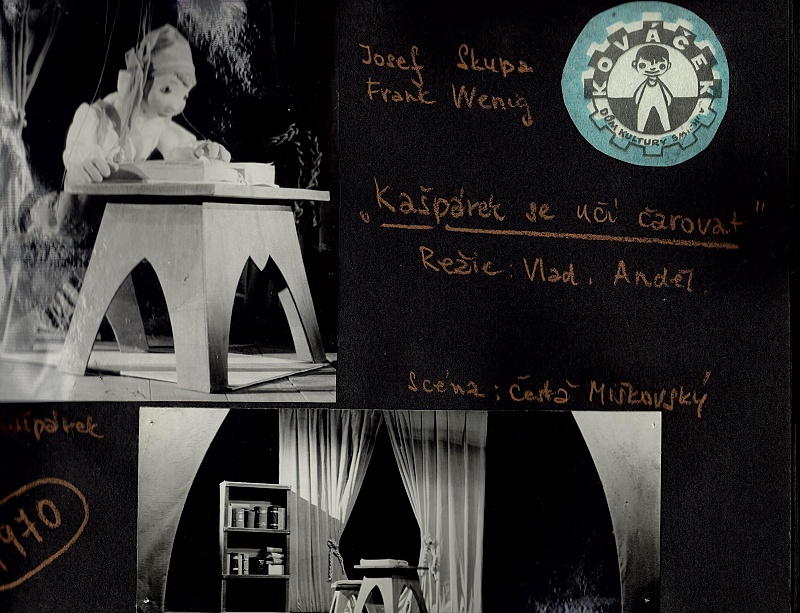 Josef Skupa
Frank Wenig
KOVÁČEK
DŮM KULTURY SMÍCHOV
„Kašpárek se učí čarovat"
Režie: Vlad. Anděl.
Scéna: Čestá Miškovský
Kašpárek
1970